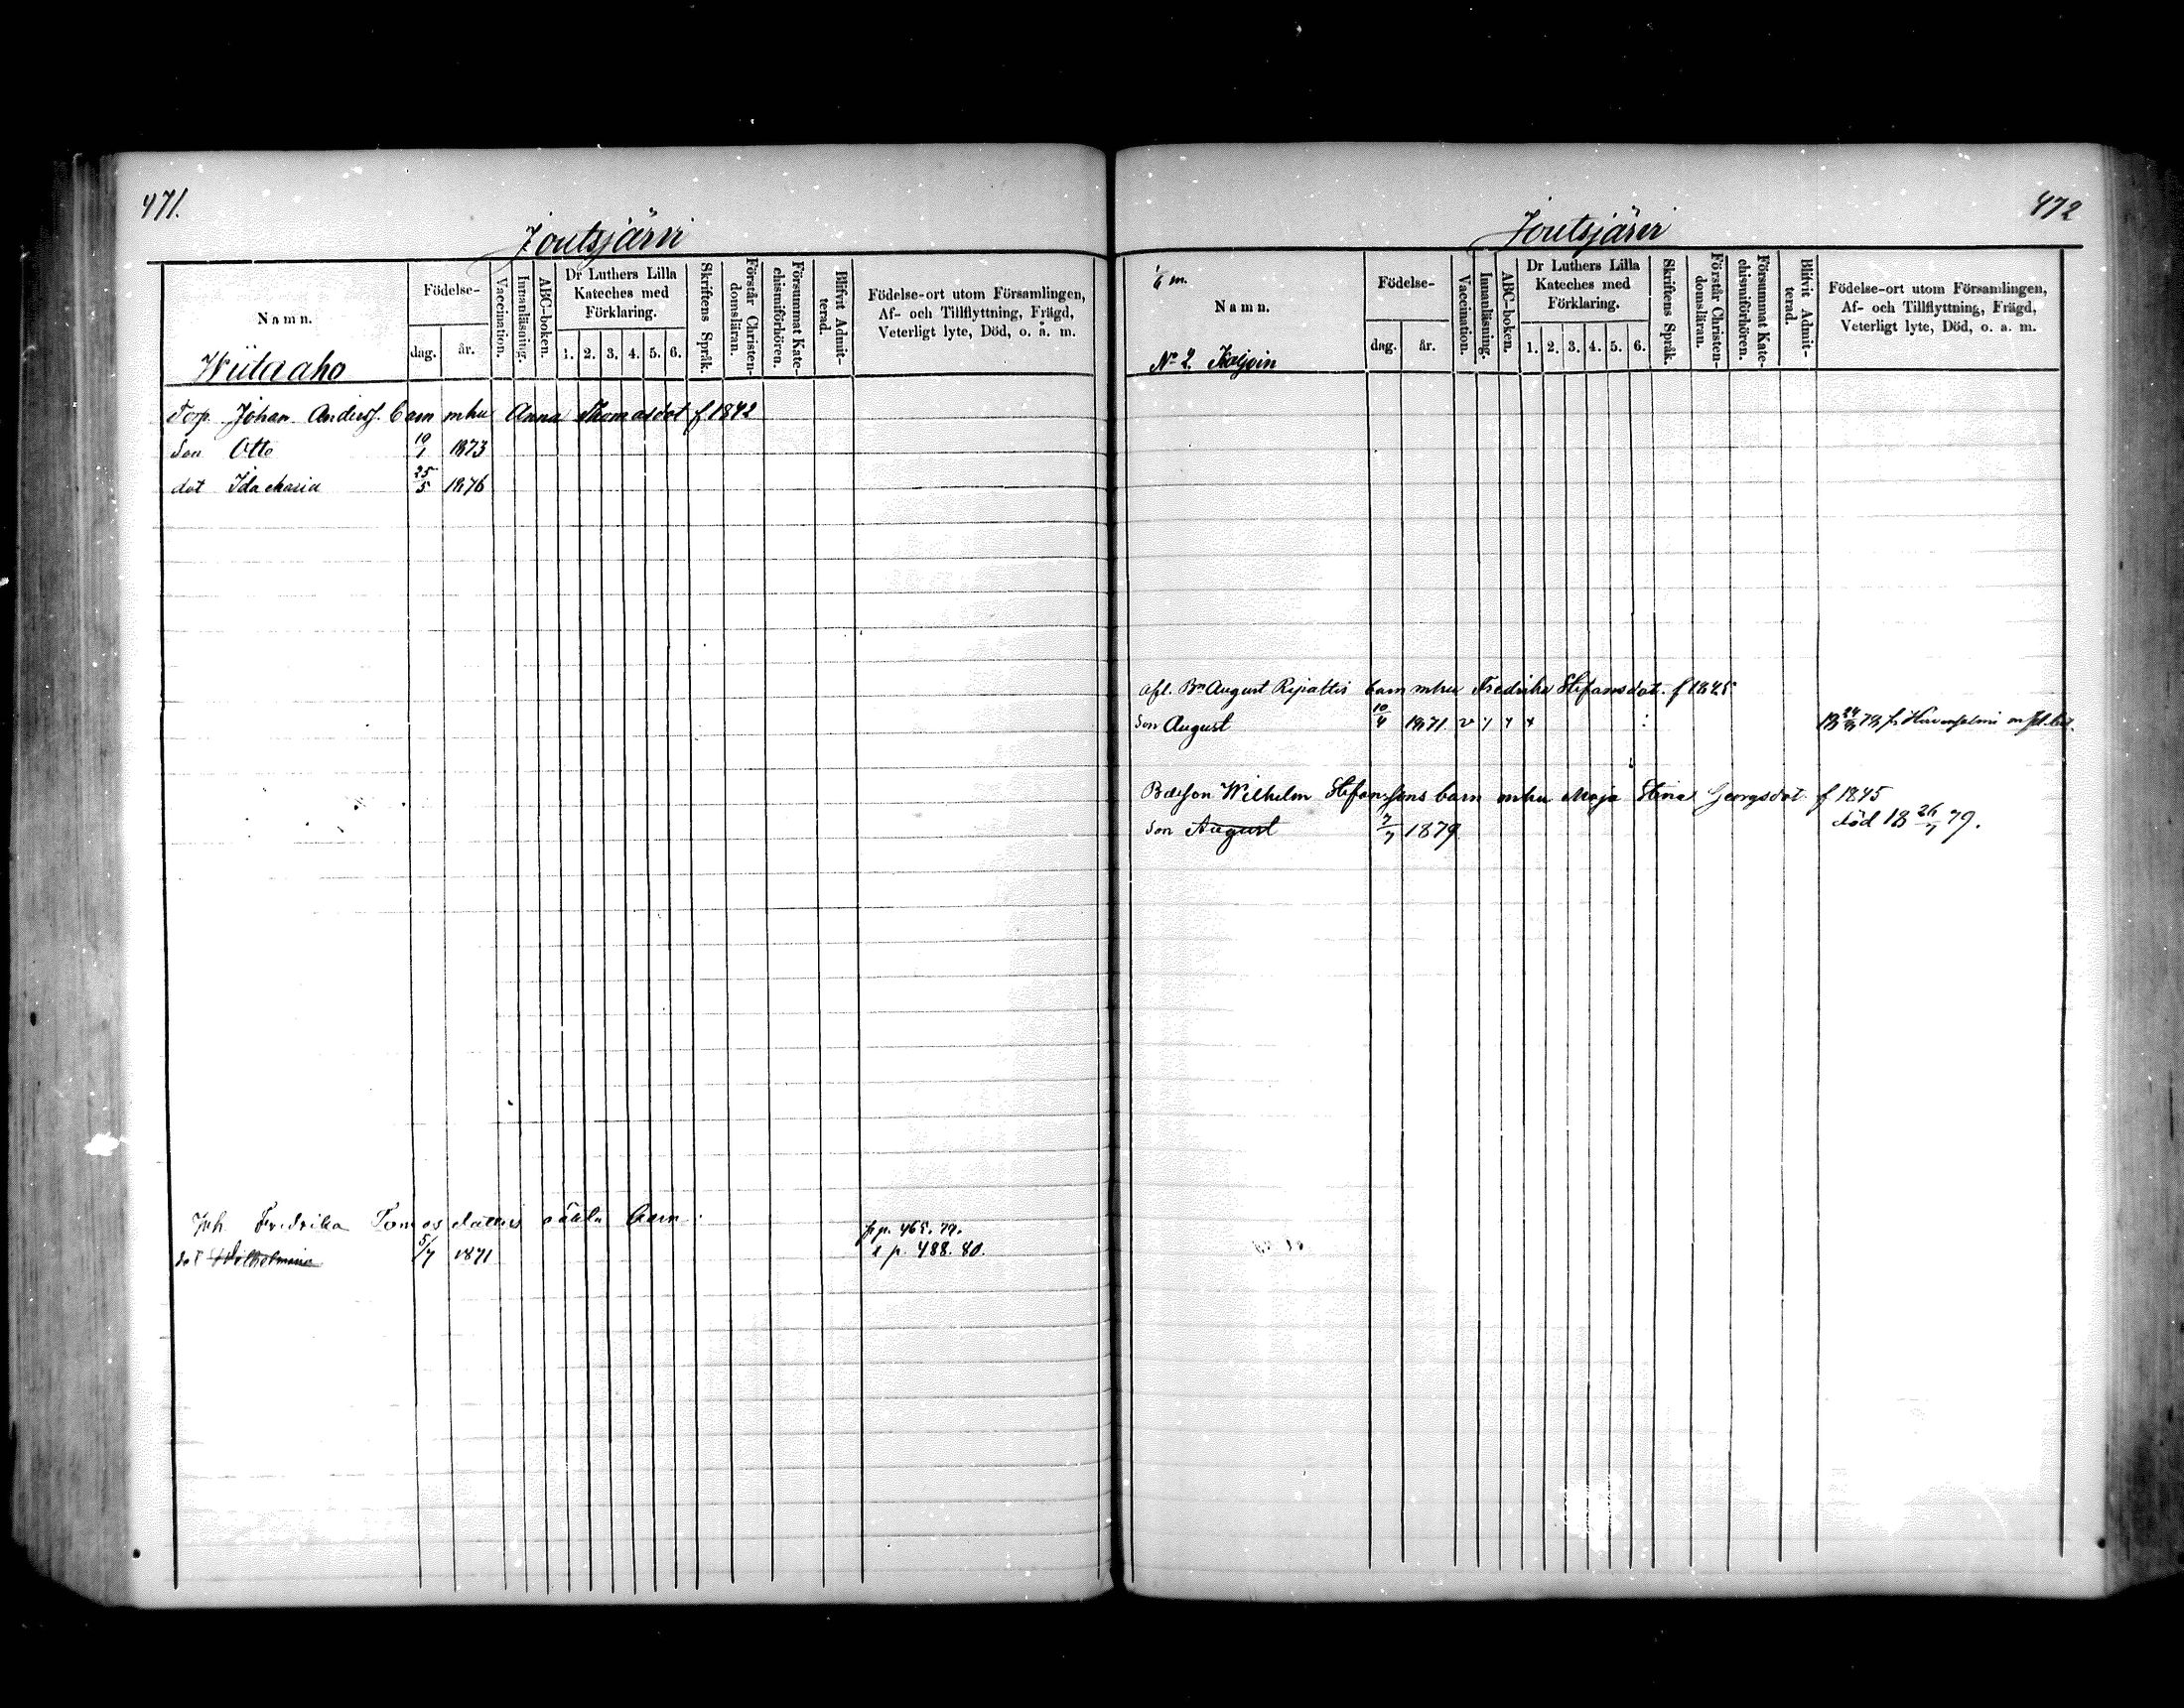 471.
Joutsjärvi
Namn.
Födelse-
dag. år.
Vaccination.
Innanläsning.
ABC-boken.
Dr Luthers Lilla
Kateches med
Förklaring.
1. 2. 3. 4. 5. 6.
Skriftens Språk.
Förstår Christen-
domsläran.
Försummat Kate-
chismiförhören.
Blifvit Admit-
terad.
Födelse-ort utom Församlingen,
Af- och Tillflyttning, Frägd,
Veterligt lyte, Död, o. a. m.
Wiitaaho
Torp. Johan Anderss. barn mhu Anna Thomasdot f 1842
Son Otto 19/1 1873
dot Ida Maria 25/5 1876
Inh. Fredrika Tomasdotters oäkta barn
fr p. 465. 79.
dot Wilhelmina 5/7 1871 t p. 488. 80.
472
Joutsjärvi
1/6 m.
Namn.
Födelse-
dag. år.
Vaccination.
Innanläsning.
ABC-boken.
Dr Luthers Lilla
Kateches med
Förklaring.
1. 2. 3. 4. 5. 6.
Skriftens Språk.
Förstår Christen-
domsläran.
Försummat Kate-
chismiförhören.
Blifvit Admit-
terad.
Födelse-ort utom Församlingen,
Af- och Tillflyttning, Frägd,
Veterligt lyte, Död, o. a. m.
No 2.
afl. Bn August barn mhu Fredrika Stefansdot. f 1845
Son August 10/4 1871
Wilhelm Stefanssons barn mhu Maja Stina Georgsdot f 1845
Son August 7/7 1879 död 18 26/7 79.